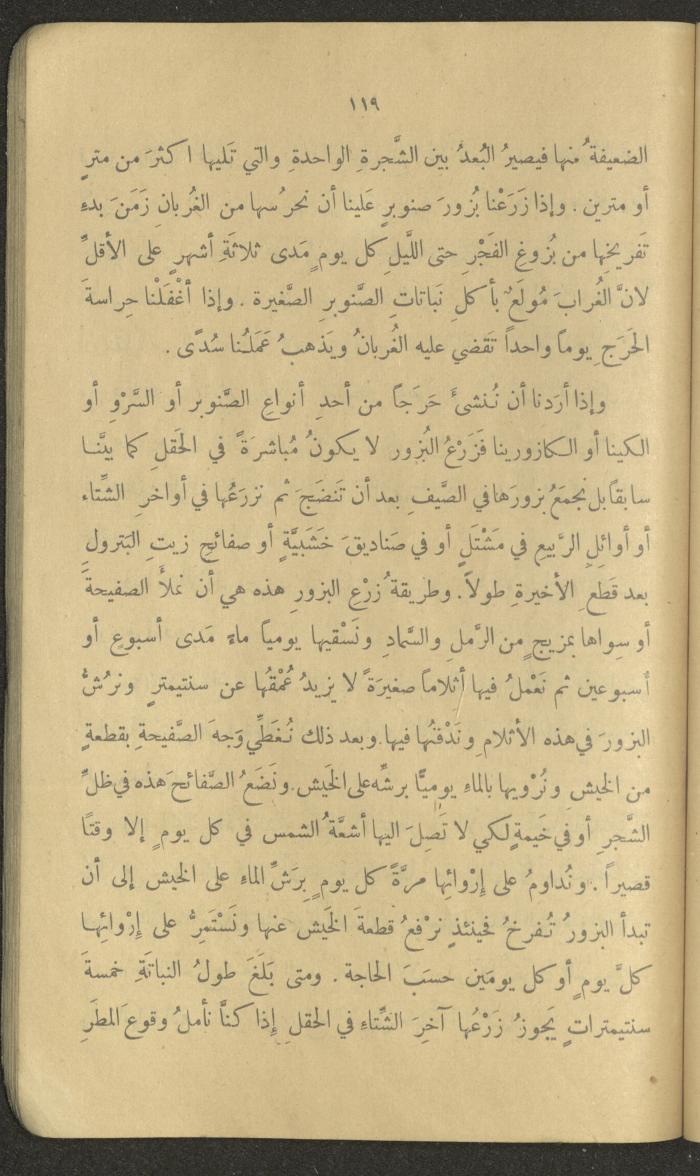 ١١٩
الضعيفةُ منها فيصيرُ البُعدُ بين الشَّجرةِ الواحدةِ والتي تَليها اكثرَ من مترٍ
أو مترين . وإذا زَرَعْنا بُزورَ صنوبرٍ عَلينا أن نحرُسها من الغُربانِ زَمَنَ بدءِ
تَفريخِها من بُزوغِ الفَجْرِ حتى اللَّيلِ كل يومٍ مَدى ثلاثَةِ أشهرٍ على الأقلِّ
لانَّ الغُرابَ مُولَعٌ بأكلِ نَباتاتِ الصَّنوبرِ الصَّغيرة . وإذا أغْفَلْنا حِراسةَ
الحَرَجِ يوماً واحداً تَقضي عليه الغُربانُ ويَذهبُ عَمَلُنا سُدًى .
وإذا أرَدنا أن نُنشئَ حَرَجاً من أحدِ أنواعِ الصَّنوبر أو السَّرْوِ أو
الكينا أو الكازورينا فَزَرْعُ البُزور لا يكونُ مُباشرَةً في الحَقلِ كما بيَّنا
سابقاً بل نجمَعُ بزورَها في الصَّيفِ بعد أن تَنضَجَ ثم نزرَعُها في أواخرِ الشّتاء
أو أوائلِ الرَّبيعِ في مَشْتَلٍ أو في صَناديقَ خَشَبيَّةٍ أو صفائحِ زيتِ البَترولِ
بعد قَطعِ الأخيرةِ طولاً . وطريقةُ زرْعِ البزورِ هذه هي أن نملأَ الصفيحةَ
أو سِواها بمزيجٍ من الرَّملِ والسَّمادِ ونَسْقيها يومياً ماءً مَدى أسبوعٍ أو
أسبوعين ثم نَعْملُ فيها أثلاماً صغيرَةً لا يزيدُ عُمْقُها عن سنتيمترٍ ونرُشُّ
البزورَ في هذه الأثلامِ ونَدْفنُها فيها. وبعد ذلك نُغَطِّي وَجهَ الصَّفيحةِ بقطعةٍ
من الخيشِ ونُرْويها بالماءِ يوميًّا برشّه على الخَيش. ونَضَعُ الصَّفائحَ هذه في ظلِّ
الشَّجرِ أو في خَيمةٍ لكي لا تَصِلَ اليها أشعَّةُ الشمس في كل يومٍ إلا وقتًا
قصيراً . ونُداومُ على إرْوائِها مرَّةً كل يومٍ برَشِّ الماءِ على الخيش إلى أن
تبدأ البزورُ تُفرخُ فحينئذٍ نرْفعُ قطعةَ الخَيش عنها ونَسْتَمِرُّ على إرْوائِها
كلَّ يومٍ أو كل يومَين حسَبَ الحاجة . ومتى بَلَغَ طولُ النباتَةِ خمسةَ
سنتيمتراتٍ يَجوزُ زَرْعُها آخرَ الشّتاءِ في الحقلِ إذا كنَّا نأملُ وقوعَ المطَرِ